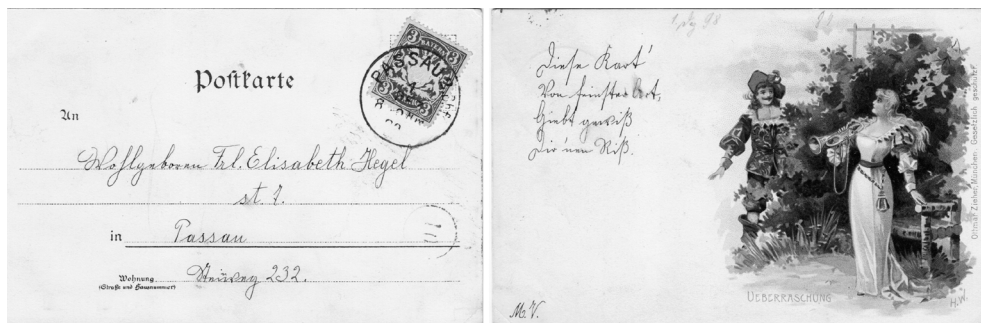 Postkarte
BAYERN
3 3
PASSAU
An
Wohlgeboren Frl. Elisabeth Hegel
st. J.
in Passau
Wohnung
(Straße und Hausnummer)
Steinweg 232.
1 98
Diese Kart'
Von feinster Art,
Giebt gewiß
Dir 'nen Riß.
M. V.
UEBERRASCHUNG
H.W.
Ottmar Zieher, München. Gesetzlich geschützt